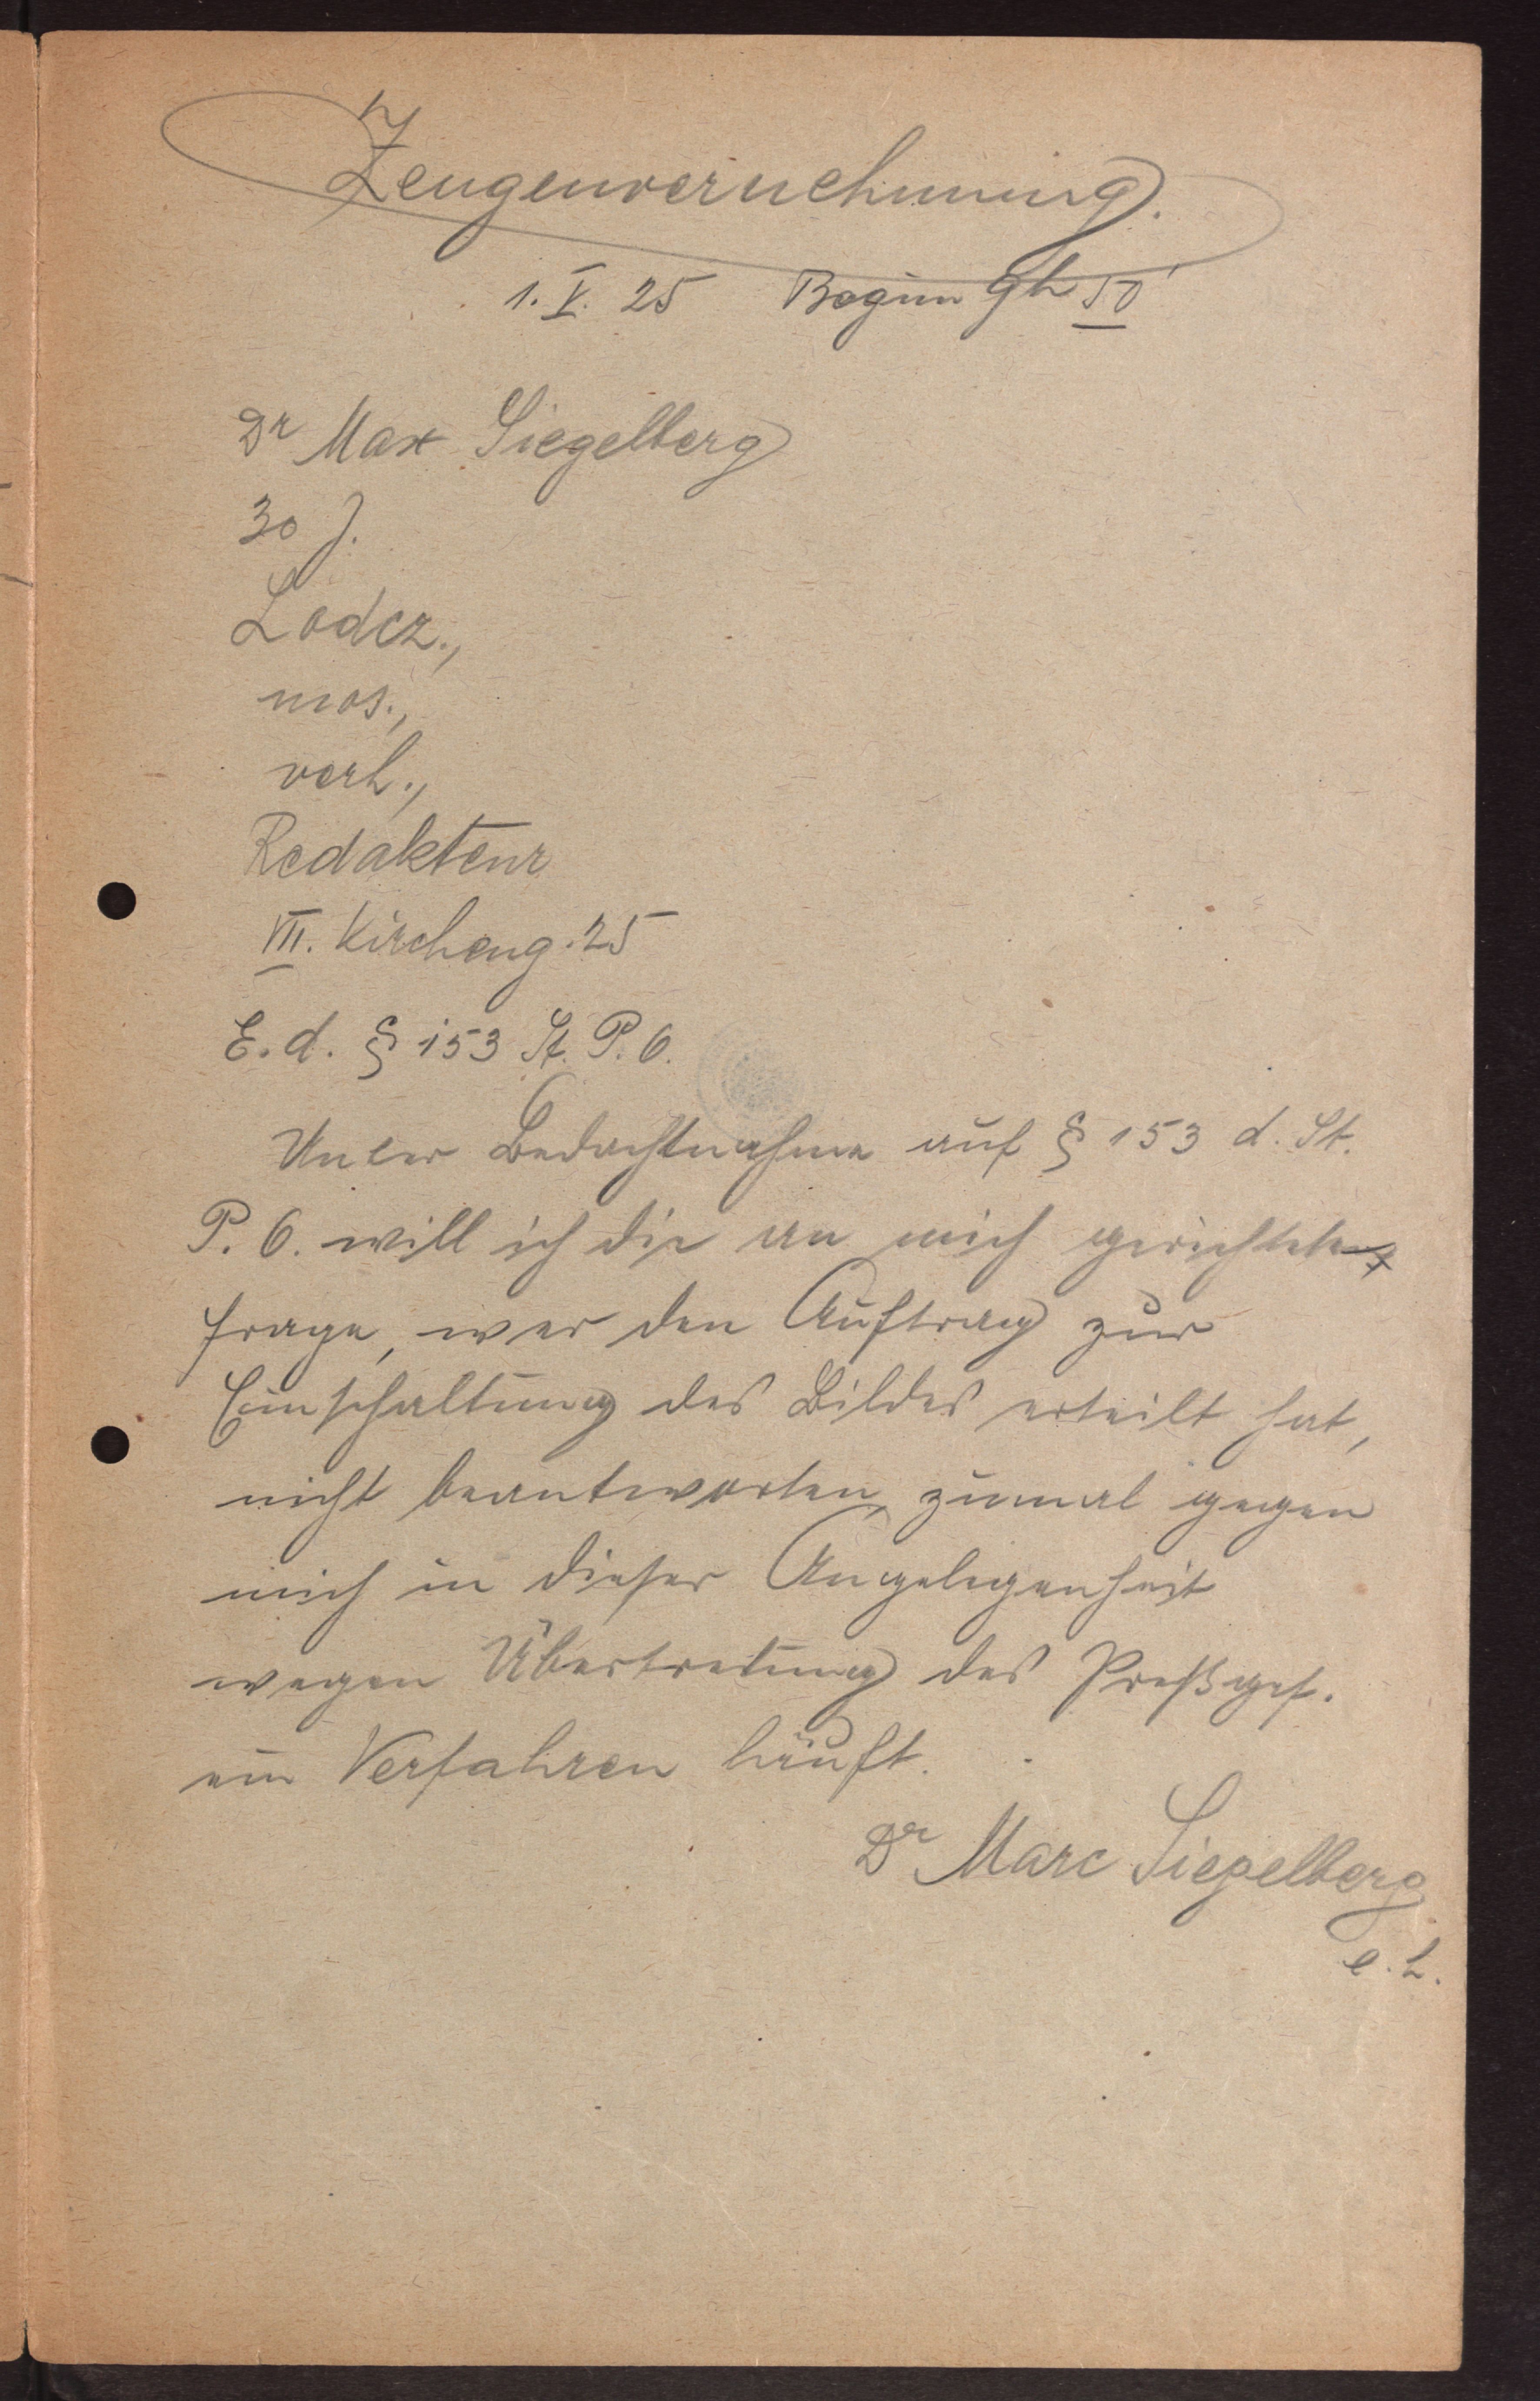 Zeugenvernehmung.
1. V. 25 Beginn 9h 50'
Dr Max Siegelberg
30 J.
Lodcz.,
mos.,
verh.,
Redakteur
VII. Kircheng. 25
E. d. § 153 St. P. O.
Unter Bedachtnahme auf § 153 d. St.
P. O. will ich die an mich gerichtete
Frage, wer den Auftrag zur
Einschaltung des Bildes erteilt hat,
nicht beantworten, zumal gegen
mich in dieser Angelegenheit
wegen Übertretung des Preßges.
ein Verfahren läuft.
Dr Marc Siegelberg